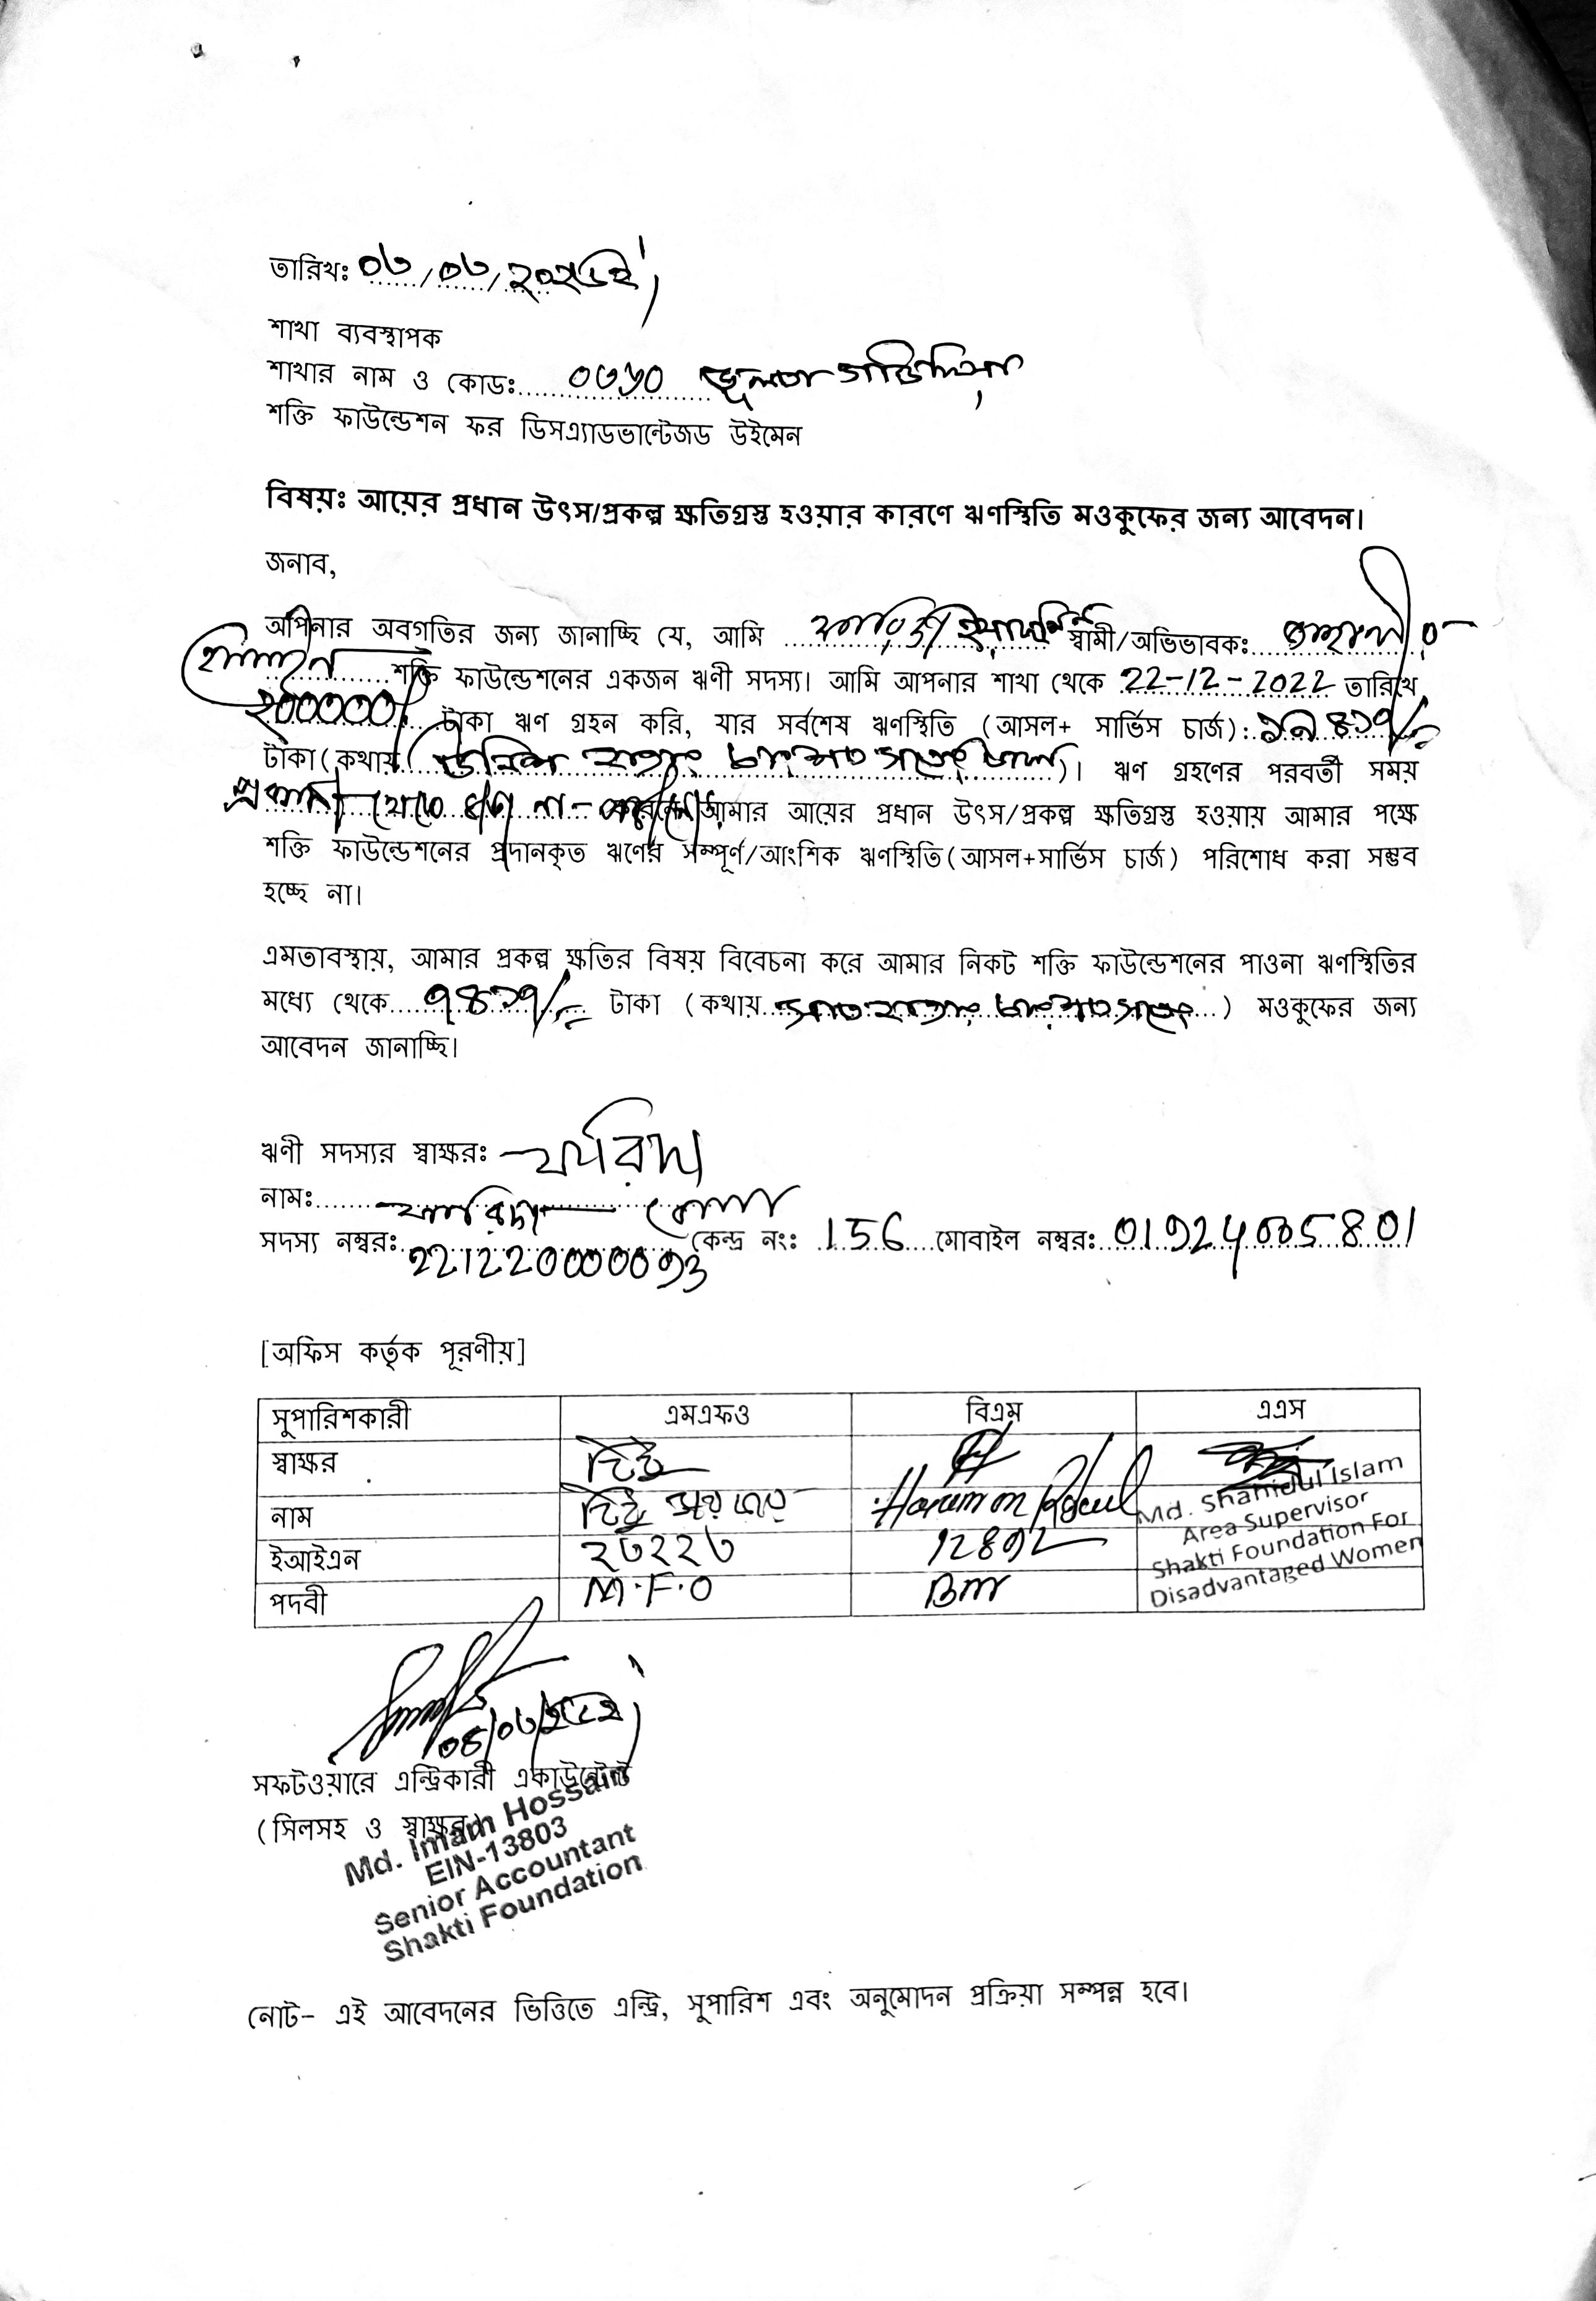 তারিখঃ ০৬/০৬/২০২৬ইং
শাখা ব্যবস্থাপক
শাখার নাম ও কোডঃ ০৩৬০ ভুলতা গাউছিয়া
শক্তি ফাউন্ডেশন ফর ডিসএ্যাডভান্টেজড উইমেন
বিষয়ঃ আয়ের প্রধান উৎস/প্রকল্প ক্ষতিগ্রস্ত হওয়ার কারণে ঋণস্থিতি মওকুফের জন্য আবেদন।
জনাব,
আপনার অবগতির জন্য জানাচ্ছি যে, আমি স্বামী/অভিভাবকঃ জাহাঙ্গীর
হোসেন শক্তি ফাউন্ডেশনের একজন ঋণী সদস্য। আমি আপনার শাখা থেকে 22-12-2022 তারিখে
২০০০০০/ টাকা ঋণ গ্রহন করি, যার সর্বশেষ ঋণস্থিতি (আসল+ সার্ভিস চার্জ): ১৯৪১৭/=
টাকা(কথায় উনিশ হাজার চারশত সতের টাকা)। ঋণ গ্রহণের পরবর্তী সময়
থেকে না আমার আয়ের প্রধান উৎস/প্রকল্প ক্ষতিগ্রস্ত হওয়ায় আমার পক্ষে
শক্তি ফাউন্ডেশনের প্রদানকৃত ঋণের সম্পূর্ণ/আংশিক ঋণস্থিতি(আসল+সার্ভিস চার্জ) পরিশোধ করা সম্ভব
হচ্ছে না।
এমতাবস্থায়, আমার প্রকল্প ক্ষতির বিষয় বিবেচনা করে আমার নিকট শক্তি ফাউন্ডেশনের পাওনা ঋণস্থিতির
মধ্যে থেকে ৭৪১৭/= টাকা (কথায় সাত হাজার চারশত সতের) মওকুফের জন্য
আবেদন জানাচ্ছি।
ঋণী সদস্যর স্বাক্ষরঃ ফরিদা
নামঃ ফরিদা বেগম
সদস্য নম্বরঃ 2212200000093 কেন্দ্র নংঃ 156 মোবাইল নম্বরঃ
[অফিস কর্তৃক পূরণীয়]
সুপারিশকারী এমএফও বিএম এএস
স্বাক্ষর
নাম Harun or Rashid Md. Shahidul Islam
Area Supervisor
ইআইএন ২৩২২৩ Shakti Foundation For
পদবী M.F.O BM Disadvantaged Women
সফটওয়ারে এন্ট্রিকারী একাউন্টেন্ট
(সিলসহ ও স্বাক্ষর)
Md. Imam Hossain
EIN-13803
Senior Accountant
Shakti Foundation
নোট- এই আবেদনের ভিত্তিতে এন্ট্রি, সুপারিশ এবং অনুমোদন প্রক্রিয়া সম্পন্ন হবে।